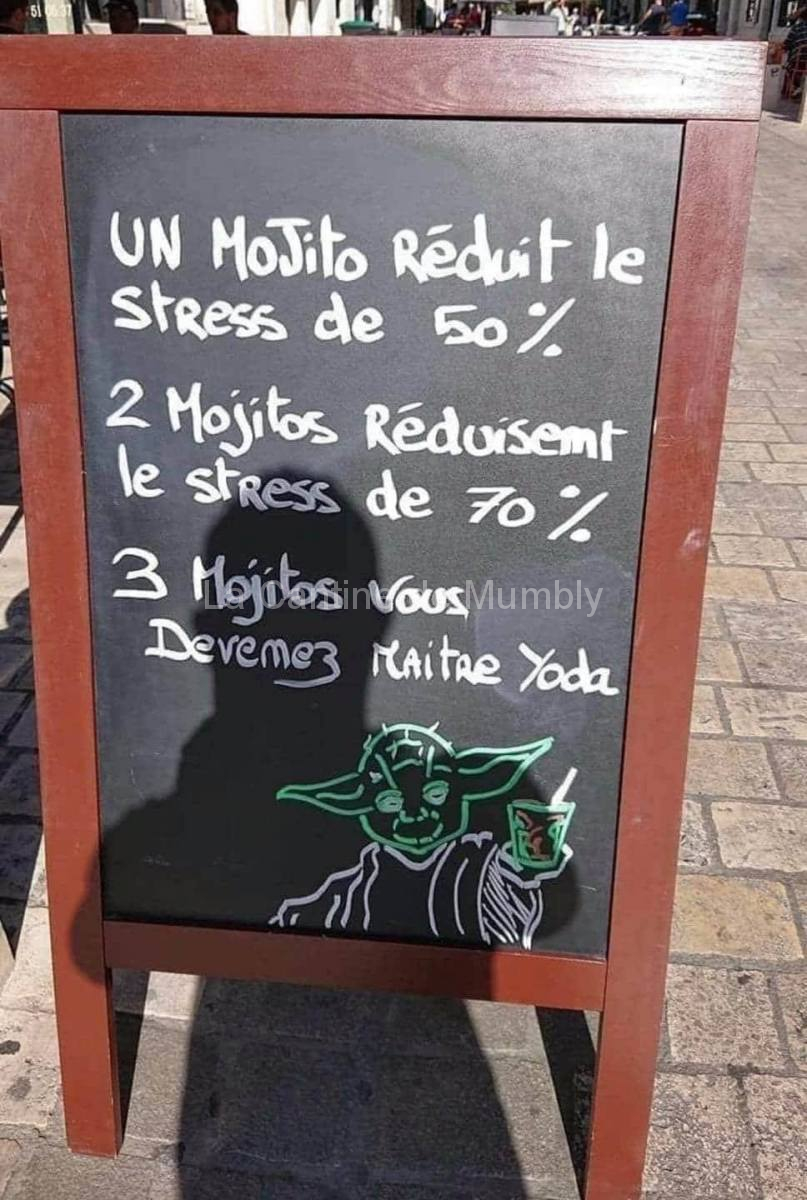 51 06 37
UN MoJito Réduit le
stRess de 50%
2 Mojitos Réduisent
le stRess de 70%
3 Mojitos Vous
Devenez MAitRe Yoda
La Cantine du Mumbly